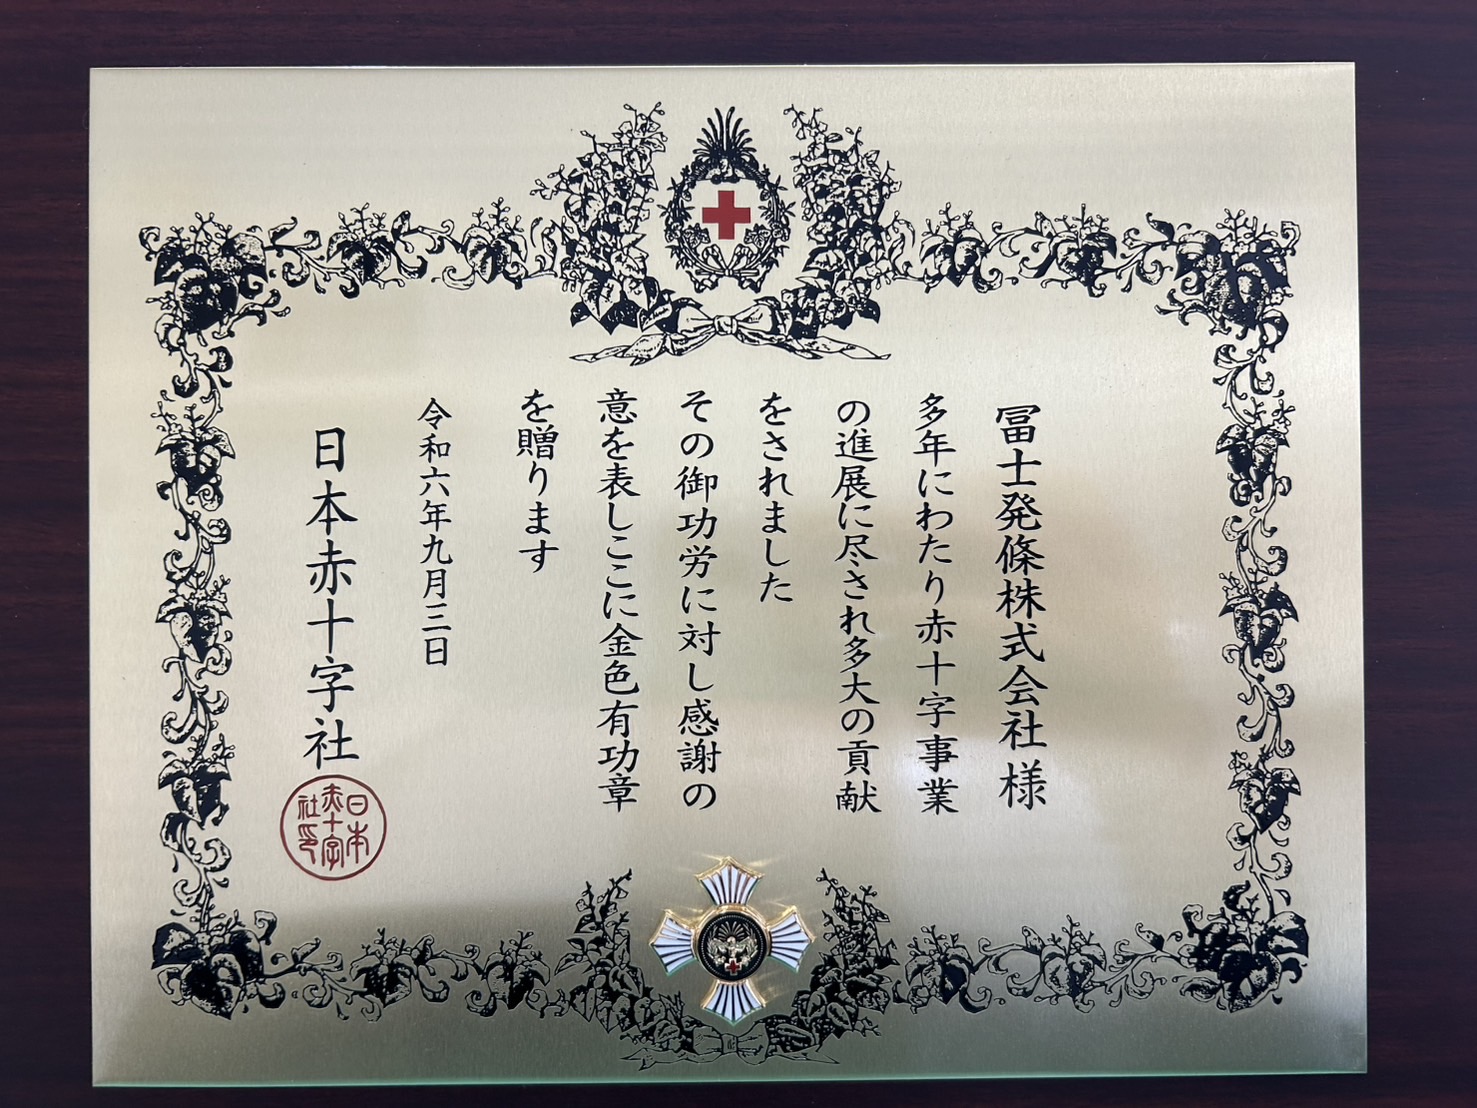 冨士発條株式会社 様
多年にわたり赤十字事業
の進展に尽され多大の貢献
をされました
その御功労に対し感謝の
意を表しここに金色有功章
を贈ります
令和六年九月三日
日本赤十字社
日本
赤十字
社印